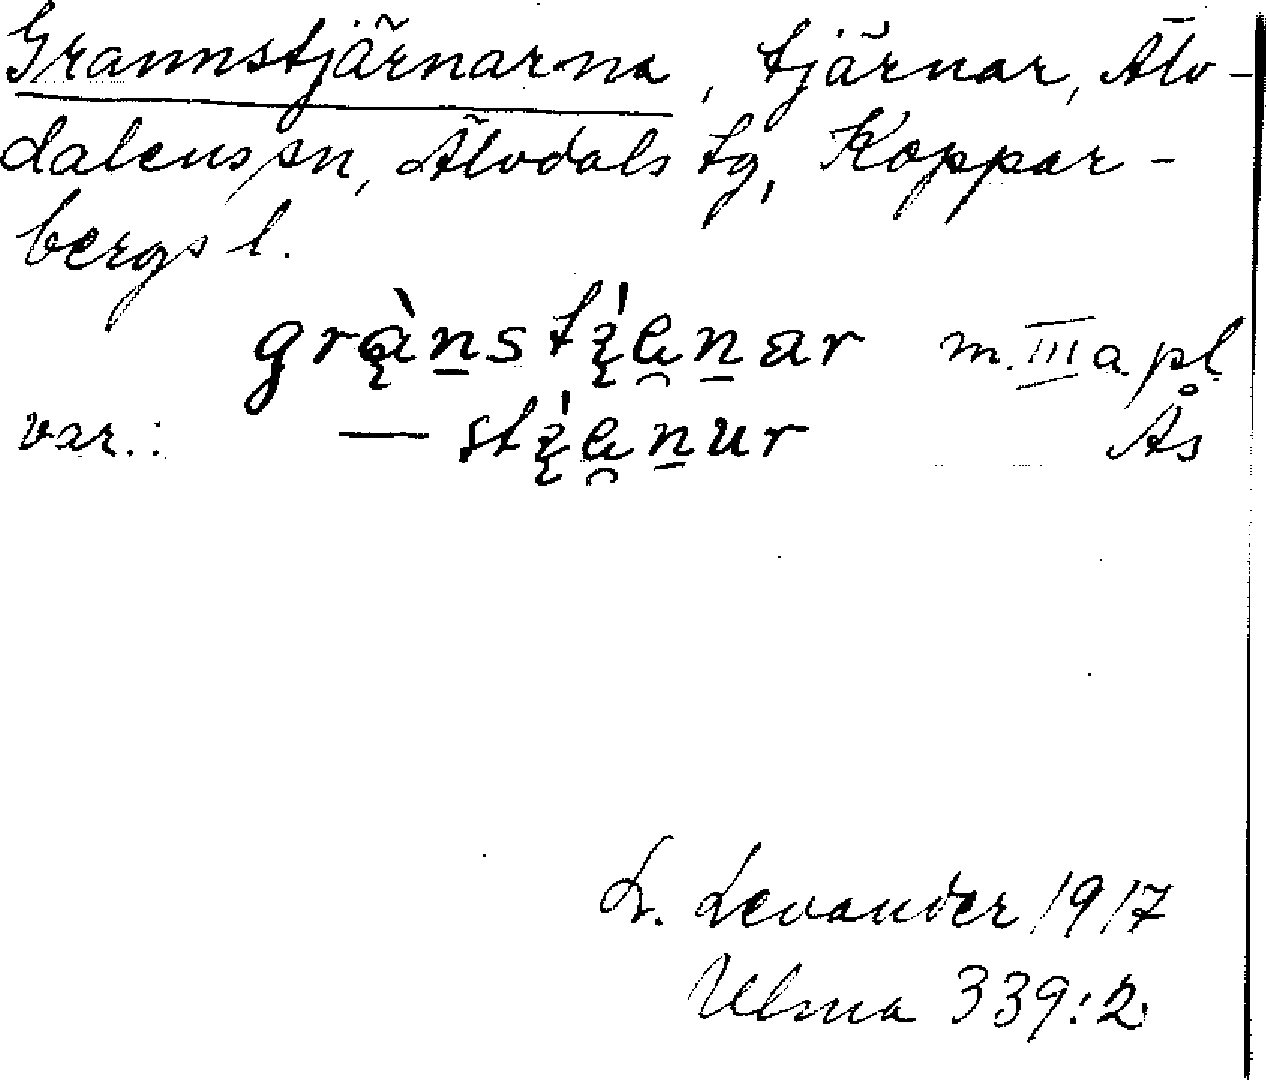 Grannstjärnarna, tjärnar, Älv-
dalens sn, Älvdals tg, Koppar-
bergs l.
grą̀n̲stį́e̯n̲ar m. III a. pl.
var.: — stį́e̯n̲ur Ås
L. Levander 1917
Ulma 339:2